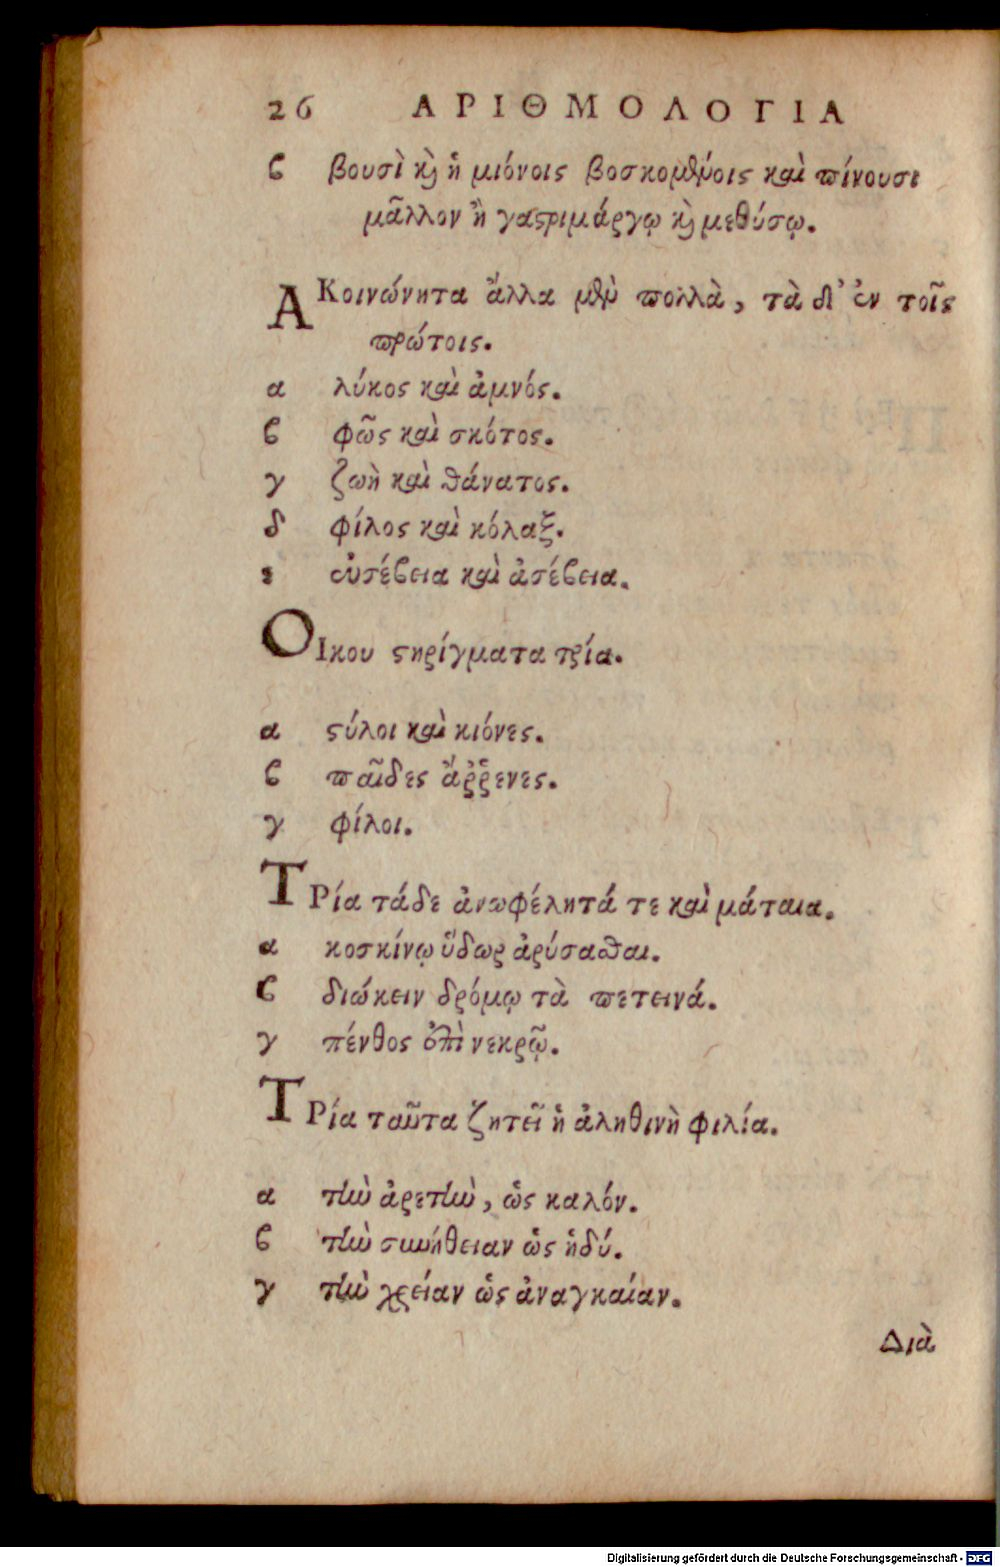 26 ΑΡΙΘΜΟΛΟΓΙΑ
ϐ βουσὶ κỳ ἡ μιόνοις βοσκομένοις καὶ πίνουσι
μᾶλλον ἢ γαϛριμάργῳ κỳ μεθύσῳ.
ΑΚοινώνητα ἄλλα μὲν πολλὰ, τὰ δ' ἐν τοῖς
πρώτοις.
α λύκος καὶ ἀμνός.
ϐ φῶς καὶ σκότος.
γ ζωὴ καὶ θάνατος.
δ φίλος καὶ κόλαξ.
ε εὐσέϐεια καὶ ἀσέϐεια.
ΟΙκου ϛηρίγματα τρία.
α ϛύλοι καὶ κιόνες.
ϐ παῖδες ἄῤῥενες.
γ φίλοι.
ΤΡία τάδε ἀνωφέλητά τε καὶ μάταια.
α κοσκίνῳ ὕδωρ ἀρύσασθαι.
ϐ διώκειν δρόμῳ τὰ πετεινά.
γ πένθος ἐπὶ νεκρῷ.
ΤΡία ταῦτα ζητεῖ ἡ ἀληθινὴ φιλία.
α τὴν ἀρετὴν, ὡς καλόν.
ϐ τὴν συνήθειαν ὡς ἡδύ.
γ τὴν χρείαν ὡς ἀναγκαίαν.
Διὰ
Digitalisierung gefördert durch die Deutsche Forschungsgemeinschaft - DFG